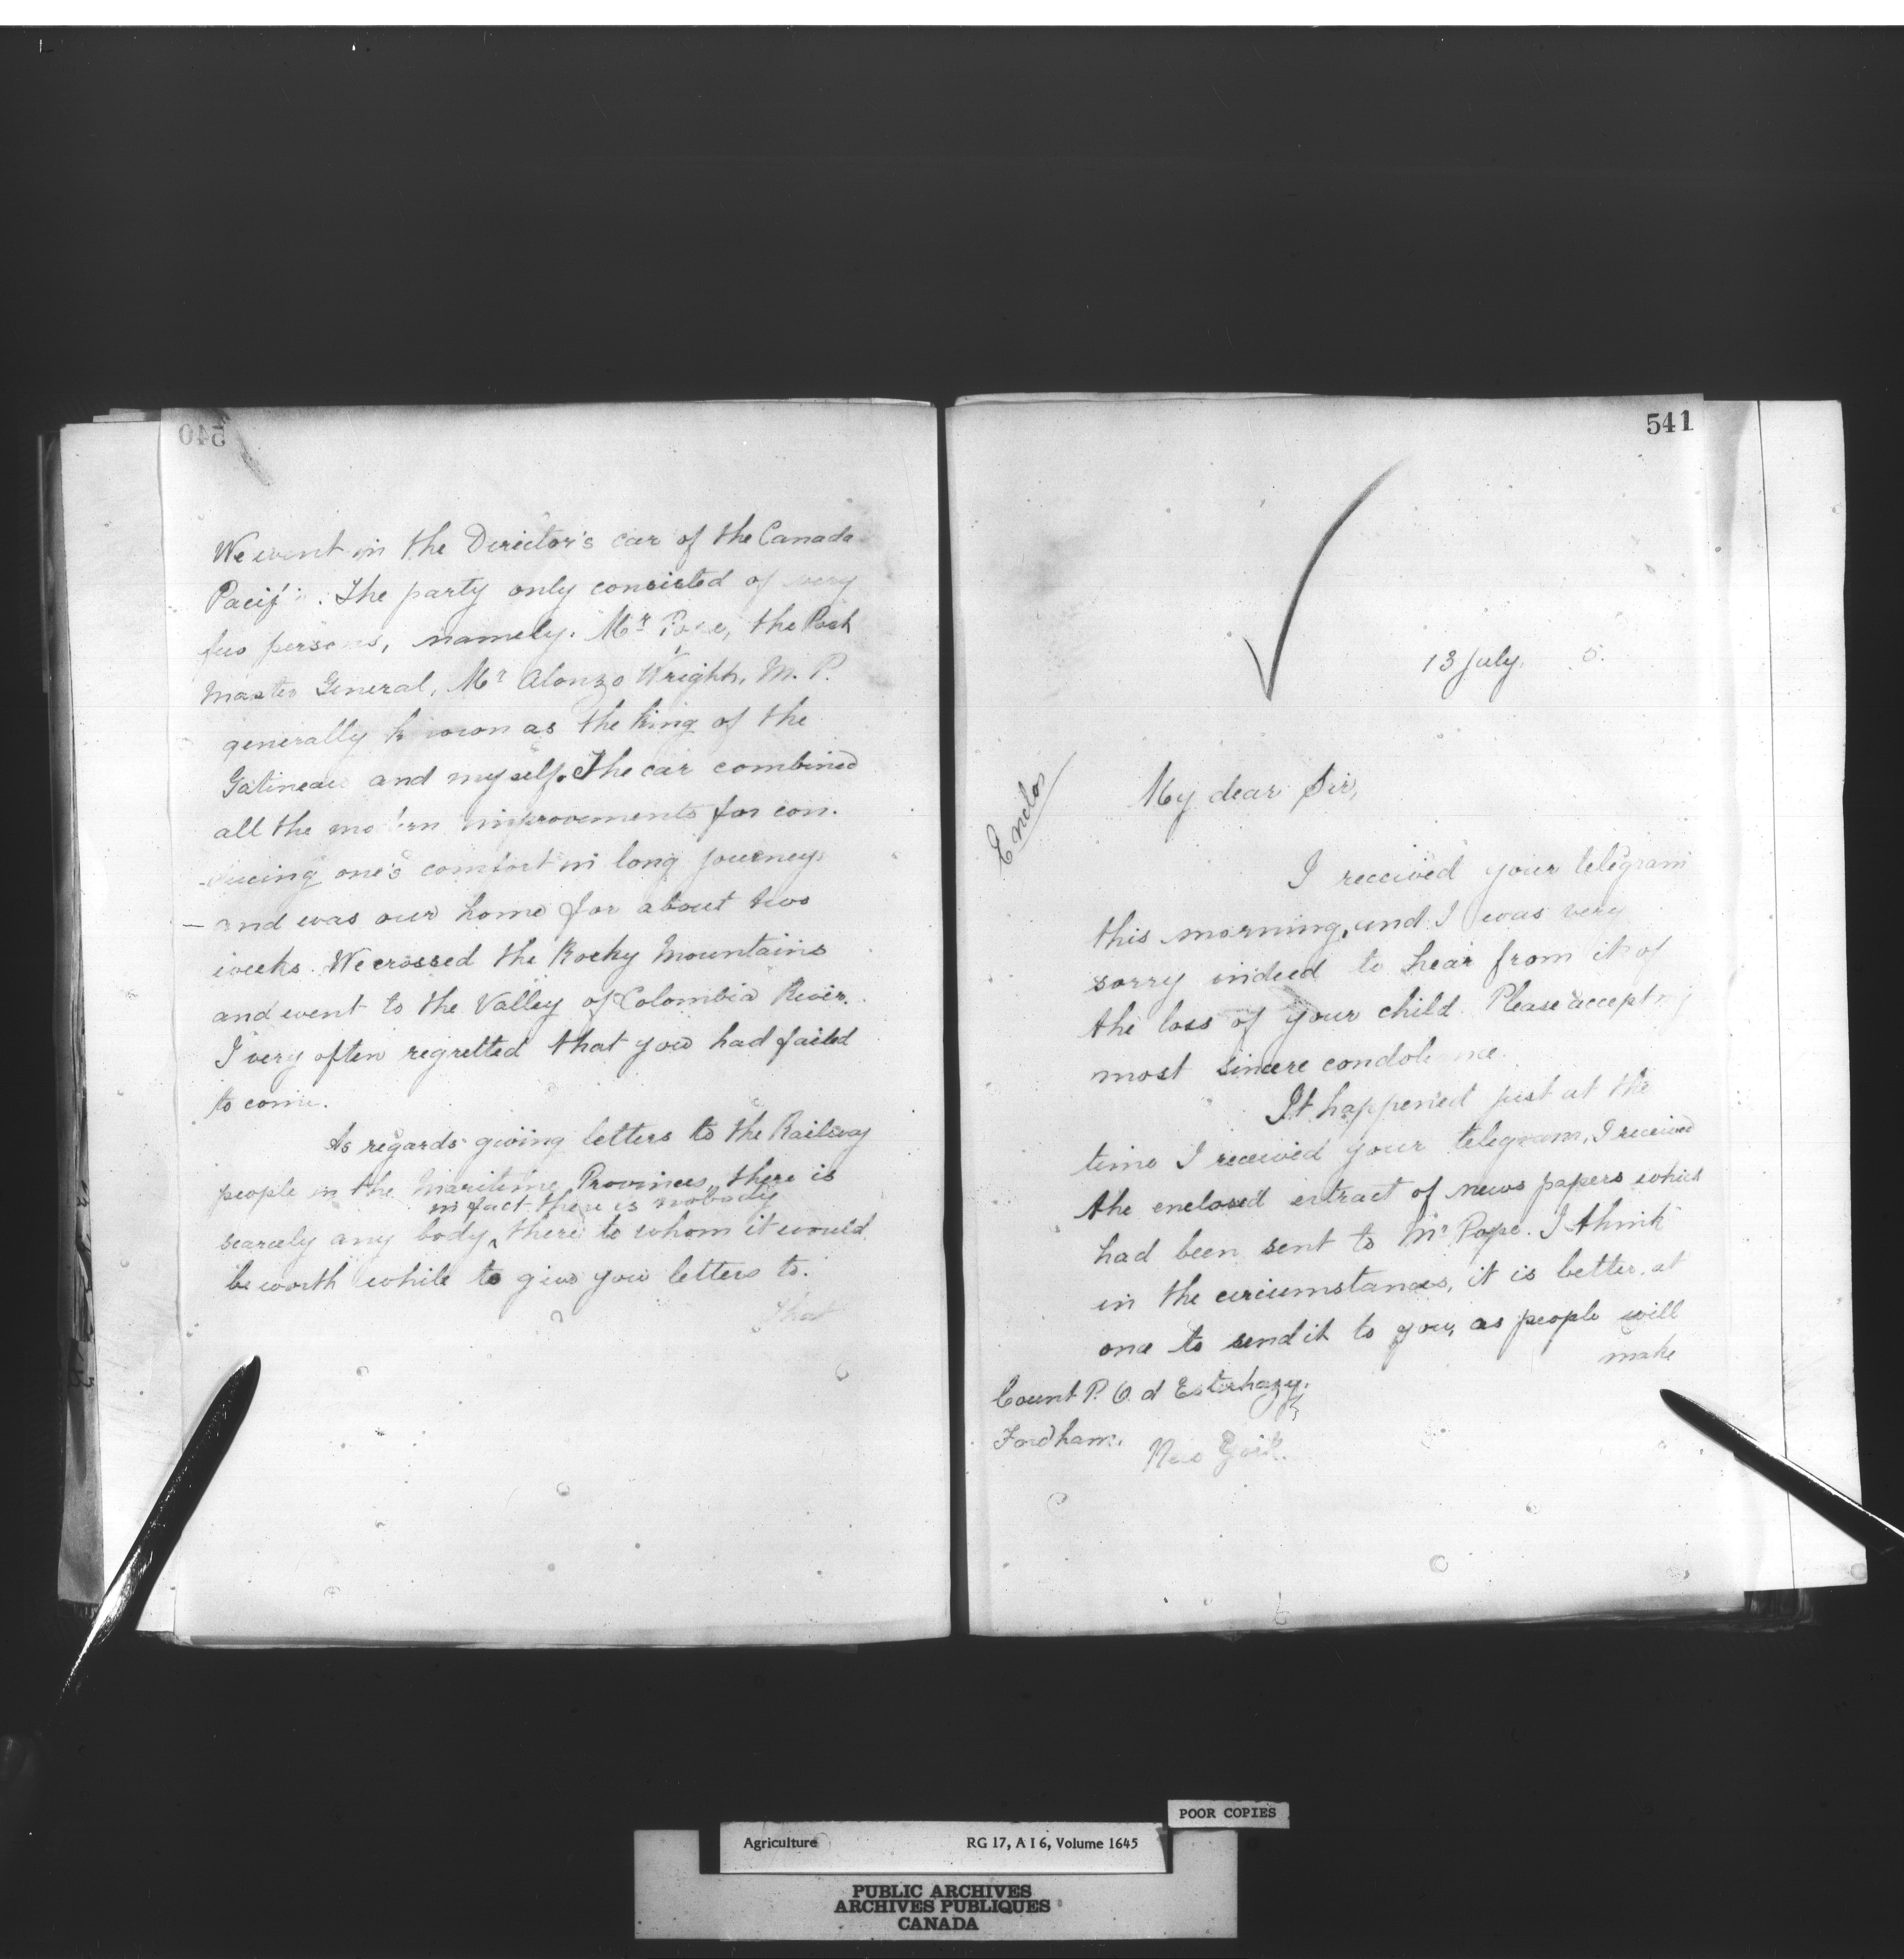 540
We went in the Director's car of the Canada
Pacif. The party only consisted of very
few persons, namely. Mr Pope, the Post
Master General, Mr Alonzo Wright, M. P.
generally known as the King of the
Gatineau and myself. The car combined
all the modern improvements for con-
ducing one's comfort in long journeys
- and was our home for about two
weeks. We crossed the Rocky Mountains
and went to the Valley of Colombia River.
I very often regretted that you had failed
to come.
As regards giving letters to the Railway
people in the Maritime Provinces, there is
in fact there is nobody
scarcely any body ^ there to whom it would
be worth while to give you letters to.
That
541
13 July, 5.
Enclos
My dear Sir,
I received your telegram
this morning, and I was very
sorry indeed to hear from it of
the loss of your child. Please accept my
most sincere condolence.
It happened just at the
time I received your telegram, I received
the enclosed extract of news papers which
had been sent to Mr Pope. I think
in the circumstances, it is better at
once to send it to you, as people will
make
Count P. O. d Esterhazy.
Fordham.
New York.
POOR COPIES
Agriculture RG 17, A I 6, Volume 1645
PUBLIC ARCHIVES
ARCHIVES PUBLIQUES
CANADA